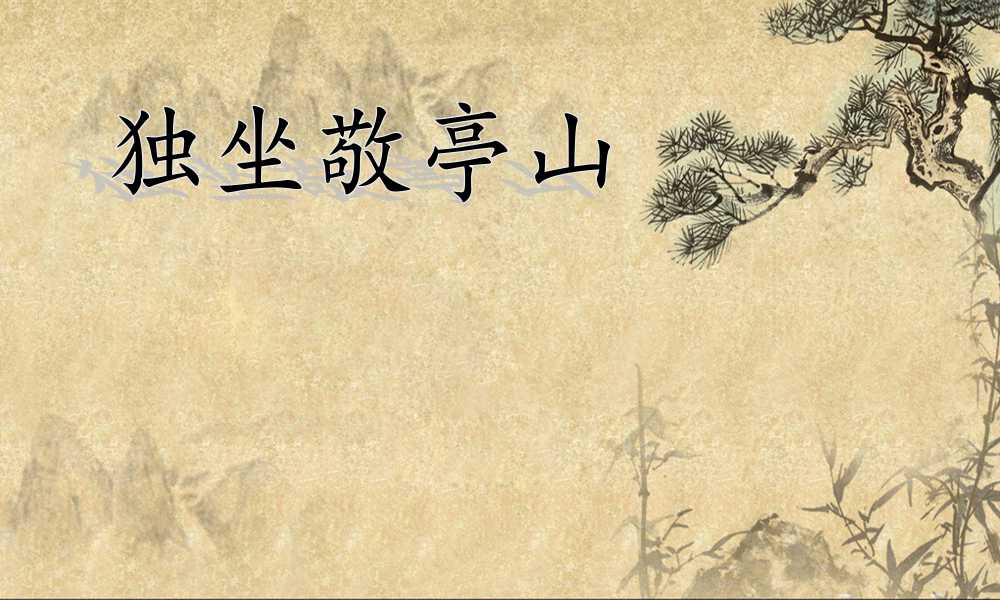 独坐敬亭山